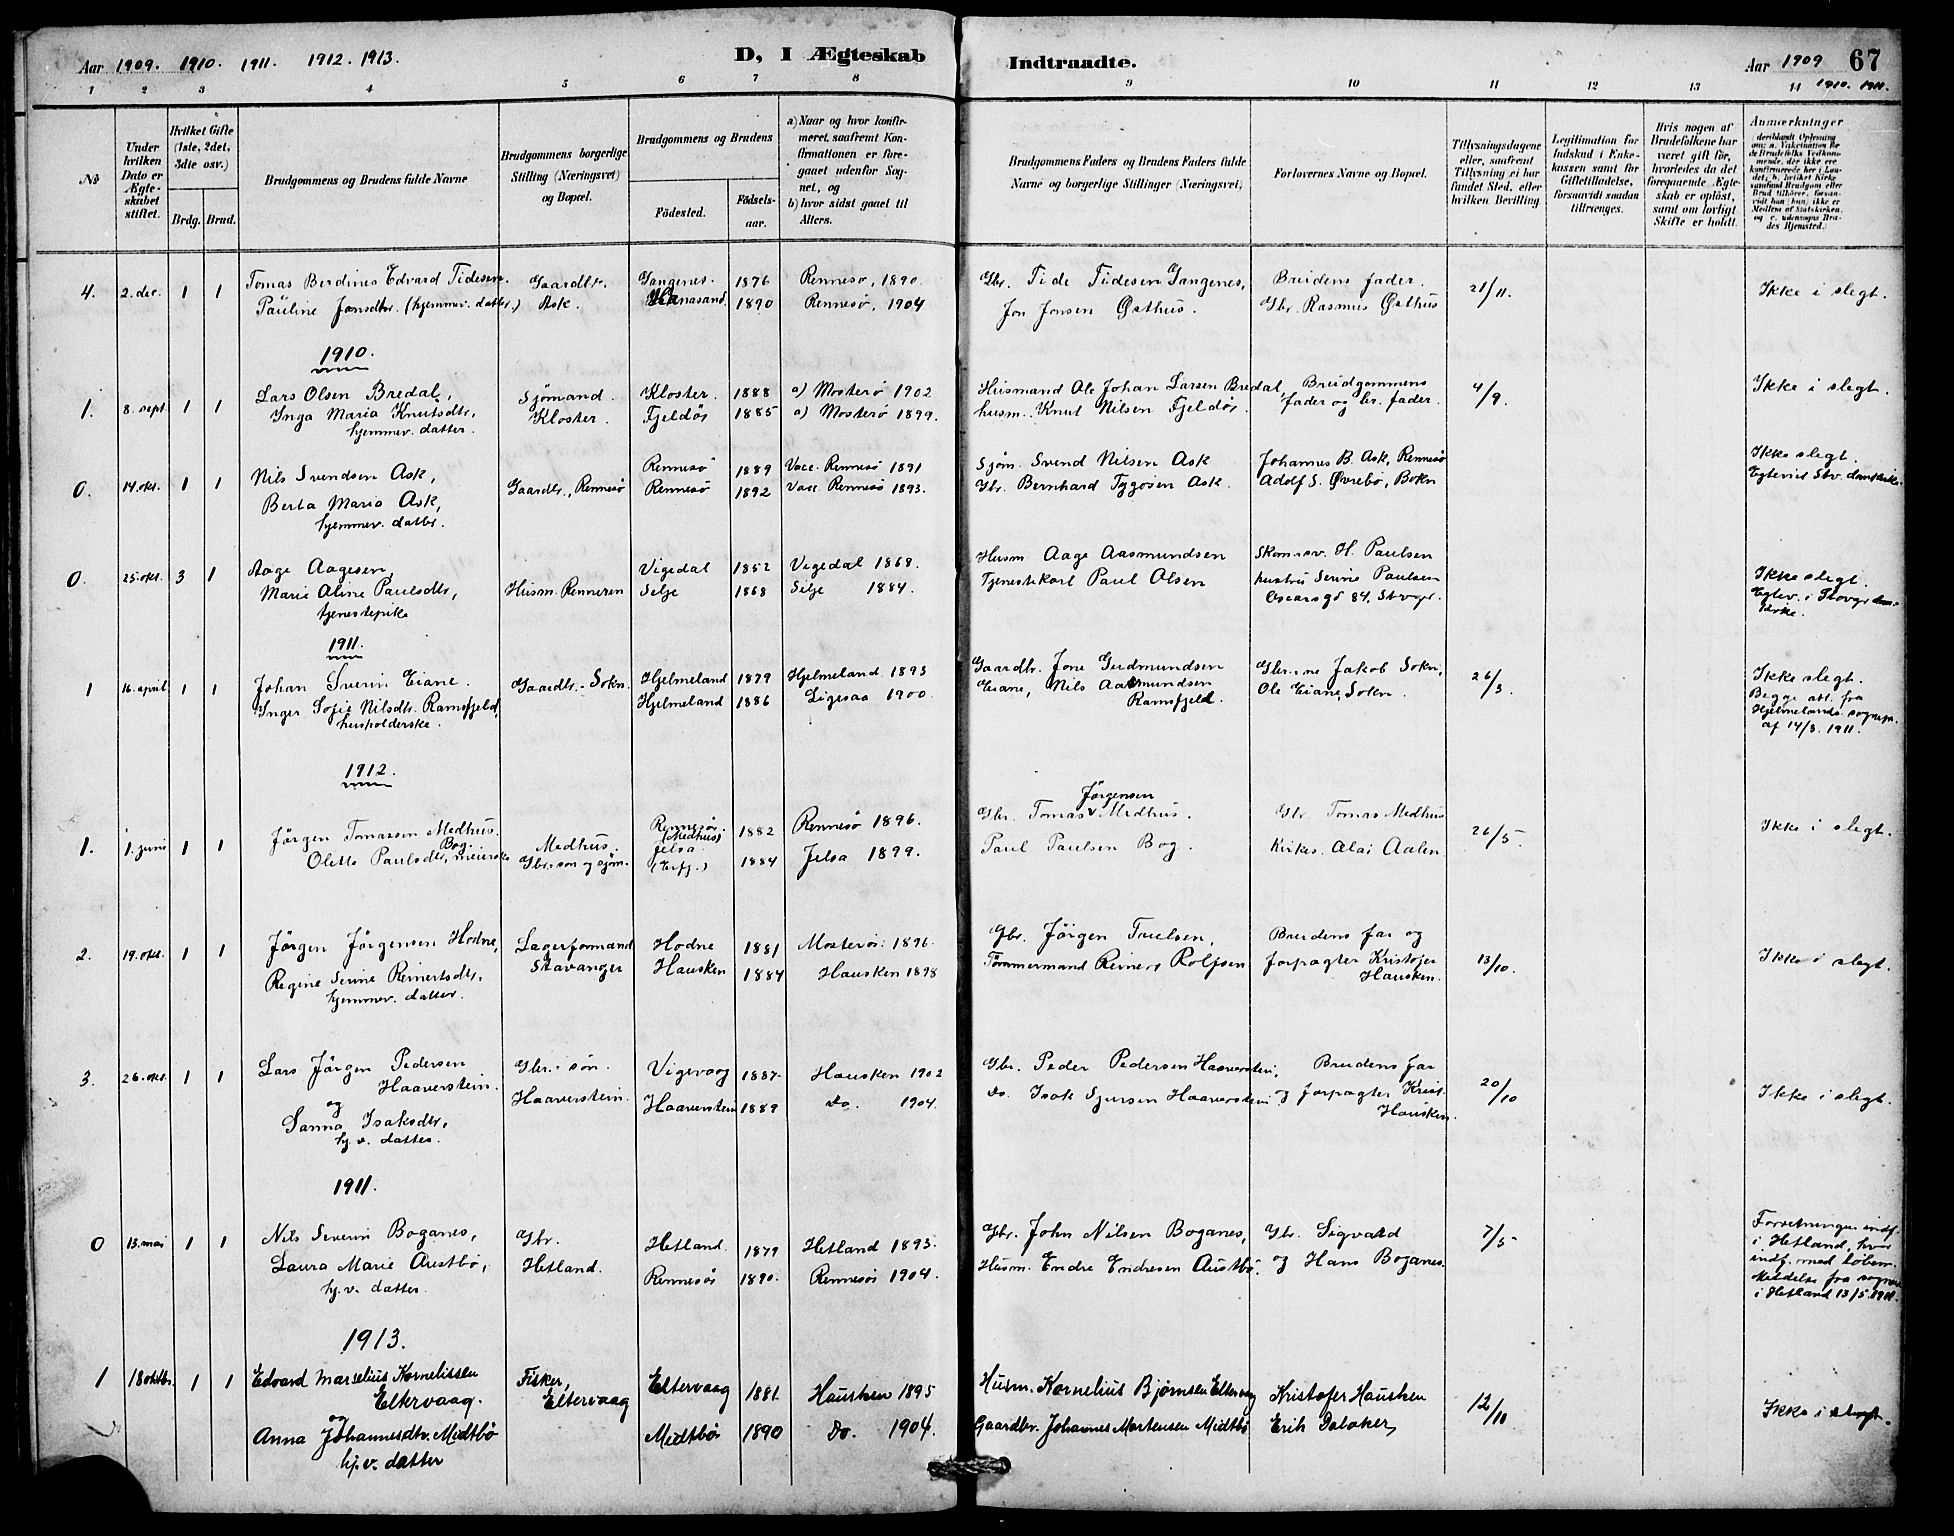 Aar 1909. 1910. 1911. 1912. 1913.
D, I Ægteskab Indtraadte.
Aar 1909 67
1910. 1911.
1 2 3 4 5 6 7 8 9 10 11 12 13 14
№
Under hvilken Dato er Ægteskabet stiftet.
Hvilket Gifte (1ste, 2det, 3die osv.)
Brdg. Brud.
Brudgommens og Brudens fulde Navne
Brudgommens borgerlige Stilling (Næringsvei) og Bopæl.
Brudgommens og Brudens
Fødested. Fødselsaar.
a) Naar og hvor konfirmeret, saafremt Konfirmationen er foregaaet udenfor Sognet, og
b) hvor sidst gaaet til Alters.
Brudgommens Faders og Brudens Faders fulde Navne og borgerlige Stillinger (Næringsvei)
Forlovernes Navne og Bopæl.
Tillysningsdagene eller, saafremt Tillysning ei har fundet Sted, efter hvilken Bevilling
Legitimation for Indskud i Enkekassen samt for Giftetilladelse, forsaavidt saadan tiltrænges.
Hvis nogen af Brudefolkene har været gift før, hvorledes da det foregaaende Ægteskab er opløst, samt om lovligt Skifte er holdt.
Anmærkninger
deriblandt Oplysning om: a. Vakcination for de Brudefolks Vedkommende, der ikke ere konfirmerede her i Landet; b. hvilket Kirkesamfund Brudgom eller Brud tilhører, forsaavidt han (hun) ikke er Medlem af Statskirken, og c. udensogns Brudes Hjemsted.
4. 2. dec. 1 1 Tomas Berdines Edvard Tidesen Gaardbr. Gangenes. 1876 Rennesø, 1890 Gbr. Tide Tidesen Gangenes, Brudens fader. 21/11. Ikke i slegt.
Pauline Jonsdtr. (hjemmev. datter.) Ask. 1890 Rennesø, 1904 Jon Jonsen Østhus. Gbr. Rasmus Østhus
1910.
1. 8. sept 1 1 Lars Olsen Bredal, Sjømand. Kloster. 1888 a) Mosterø 1902 Husmand Ole Johan Larsen Bredal, Brudgommens 4/9. Ikke i slegt.
Inga Maria Knutsdtr, Kloster. Fjeldøs 1885 a) Mosterø 1899. husm. Knut Nilsen Fjeldøs. fader og br. fader.
hjemmev. datter.
0. 14. okt. 1 1 Nils Svendsen Ask, Gaardbr., Rennesø Rennesø 1889 Vacc. Rennesø 1891 Sjøm. Svend Nilsen Ask Johannes B. Ask, Rennesø Ikke slegt.
Berta Maria Ask, Rennesø 1892 Vacc. Rennesø 1893. Gbr. Bernhard Tygøsen Ask. Adolf S. Øvrebø, Bokn Egtevid Stv. domkirke.
hjemmev. datter.
0. 25. okt. 3 1 Aage Aagesen, Husm. Renneren Vigedal 1852 Vigedal 1868. Husm Aage Aasmundsen Skom.sv. H. Paulsen
Marie Aline Paulsdtr, Silje 1868 Silje 1884. Tjenestekarl Paul Olsen hustru Serine Paulsen Ikke slegt.
tjenestepike Oscarsgd 84. Stvgr. Egtev. i Stavgr dom-
kirke.
1911.
1 16. april 1 1 Johan Sverin Eiane. Gaardbr. - Sokn. Hjelmeland 1879 Hjelmeland 1893 Gaardbr. Jone Gudmundsen Gbr.-ne Jakob Sokn, 26/3. Ikke slegt.
Inger Sofie Nilsdtr. Ramsfjeld, Hjelmeland 1886 Ligesaa 1900. Eiane, Nils Aasmundsen Ole Eiane, Sokn. Begge att. fra
husholderske. Ramsfjeld. Hjelmelands sognepr.
af 14/3. 1911.
1912.
1. 1. juni 1 1 Jörgen Tomassen Medhus. Medhus. Rennesøs (Medhus) 1882 Rennesø 1896. Gbr. Tomas v Jörgensen Medhus. Gbr. Tomas Medhus 26/5. Ikke i slegt.
Olette Paulsdtr, Bog. meierske Gbr. søn og sjøm. Jelsa 1884 Jelsa 1899. Paul Paulsen Bog. Kirkes. Alai Aalen
2. 19. okt. 1 1 Jörgen Jörgensen Hodne, Lagerformand Hodne 1881 Mosterøs: 1896. Gbr. Jörgen Truelsen, Brudens far og 13/10. Ikke i slegt.
Regine Serine Reinertsdtr, Stavanger Hausken 1884 Hausken 1898 Tømmermand Reinert Rolfsen forpagter Kristofer
hjemmev. datter. Hausken.
3. 26. okt. 1 1 Lars Jörgen Pedersen Gbr.-søn. Vigevaag 1887. Hausken 1902 Gbr. Peder Pedersen Haaverstein, Brudens far 20/10 Ikke i slegt.
Haaverstein. Haaverstein. Haaverstein 1889 Do. 1904. Do. Isak Sjursen Haaverstein og forpagter Krist.
og Hausken.
Sanna Isaksdtr,
hj. v. datter.
1911.
0 13. mai 1 1 Nils Severin Boganes, Gbr. Hetland 1879 Hetland 1893. Gbr. John Nilsen Boganes, Gbr. Sigvald 7/5 Forretningen indf.
Laura Marie Austbø, Hetland. Rennesøs 1890. Rennesøs 1904. Husm. Endre Endresen Austbø. og Hans Boganes. i Hetland, hvor
hj. v. datter. indf. med løbenr.
Meddelse fra sognepr
i Hetland 13/5 1911.
1913.
1 18 oktbr. 1 1 Edvard Marselius Kornelissen Fisker, Eltervaag 1881 Hausken 1895 Husm. Kornelius Bjørnsen Eltervaag Kristofer Hausken 12/10 Ikke i slegt.
Eltervaag. Eltervaag
og
Anna Johannesdtr. Midtbø Midtbøs 1890 Do. 1904. Gaardbr. Johannes Mortensen Midtbø Erik Dalaker,
hj. v. datter